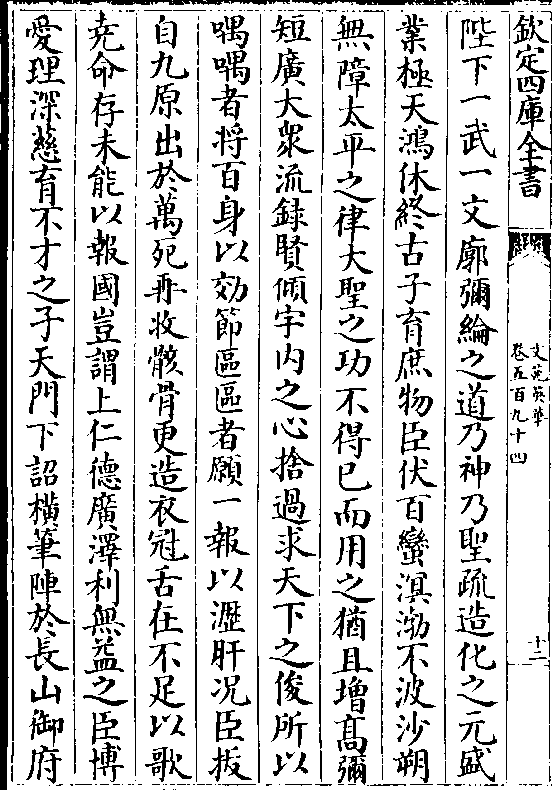 欽定四庫全書
文苑英華
卷五百九十四
十二
陛下一武一文廓彌綸之道乃神乃聖疏造化之元盛
業極天鴻休終古子育庶物臣伏百蠻溟渤不波沙朔
無障太平之律大聖之功不得已而用之猶且增髙彌
短廣大衆流録賢傾宇内之心捨過求天下之俊所以
喁喁者將百身以効節區區者願一報以瀝肝况臣拔
自九原出於萬死再收骸骨更造衣冠舌在不足以歌
堯命存未能以報國豈謂上仁德廣澤利無益之臣博
愛理深慈育不才之子天門下詔橫筆陣於長山御府